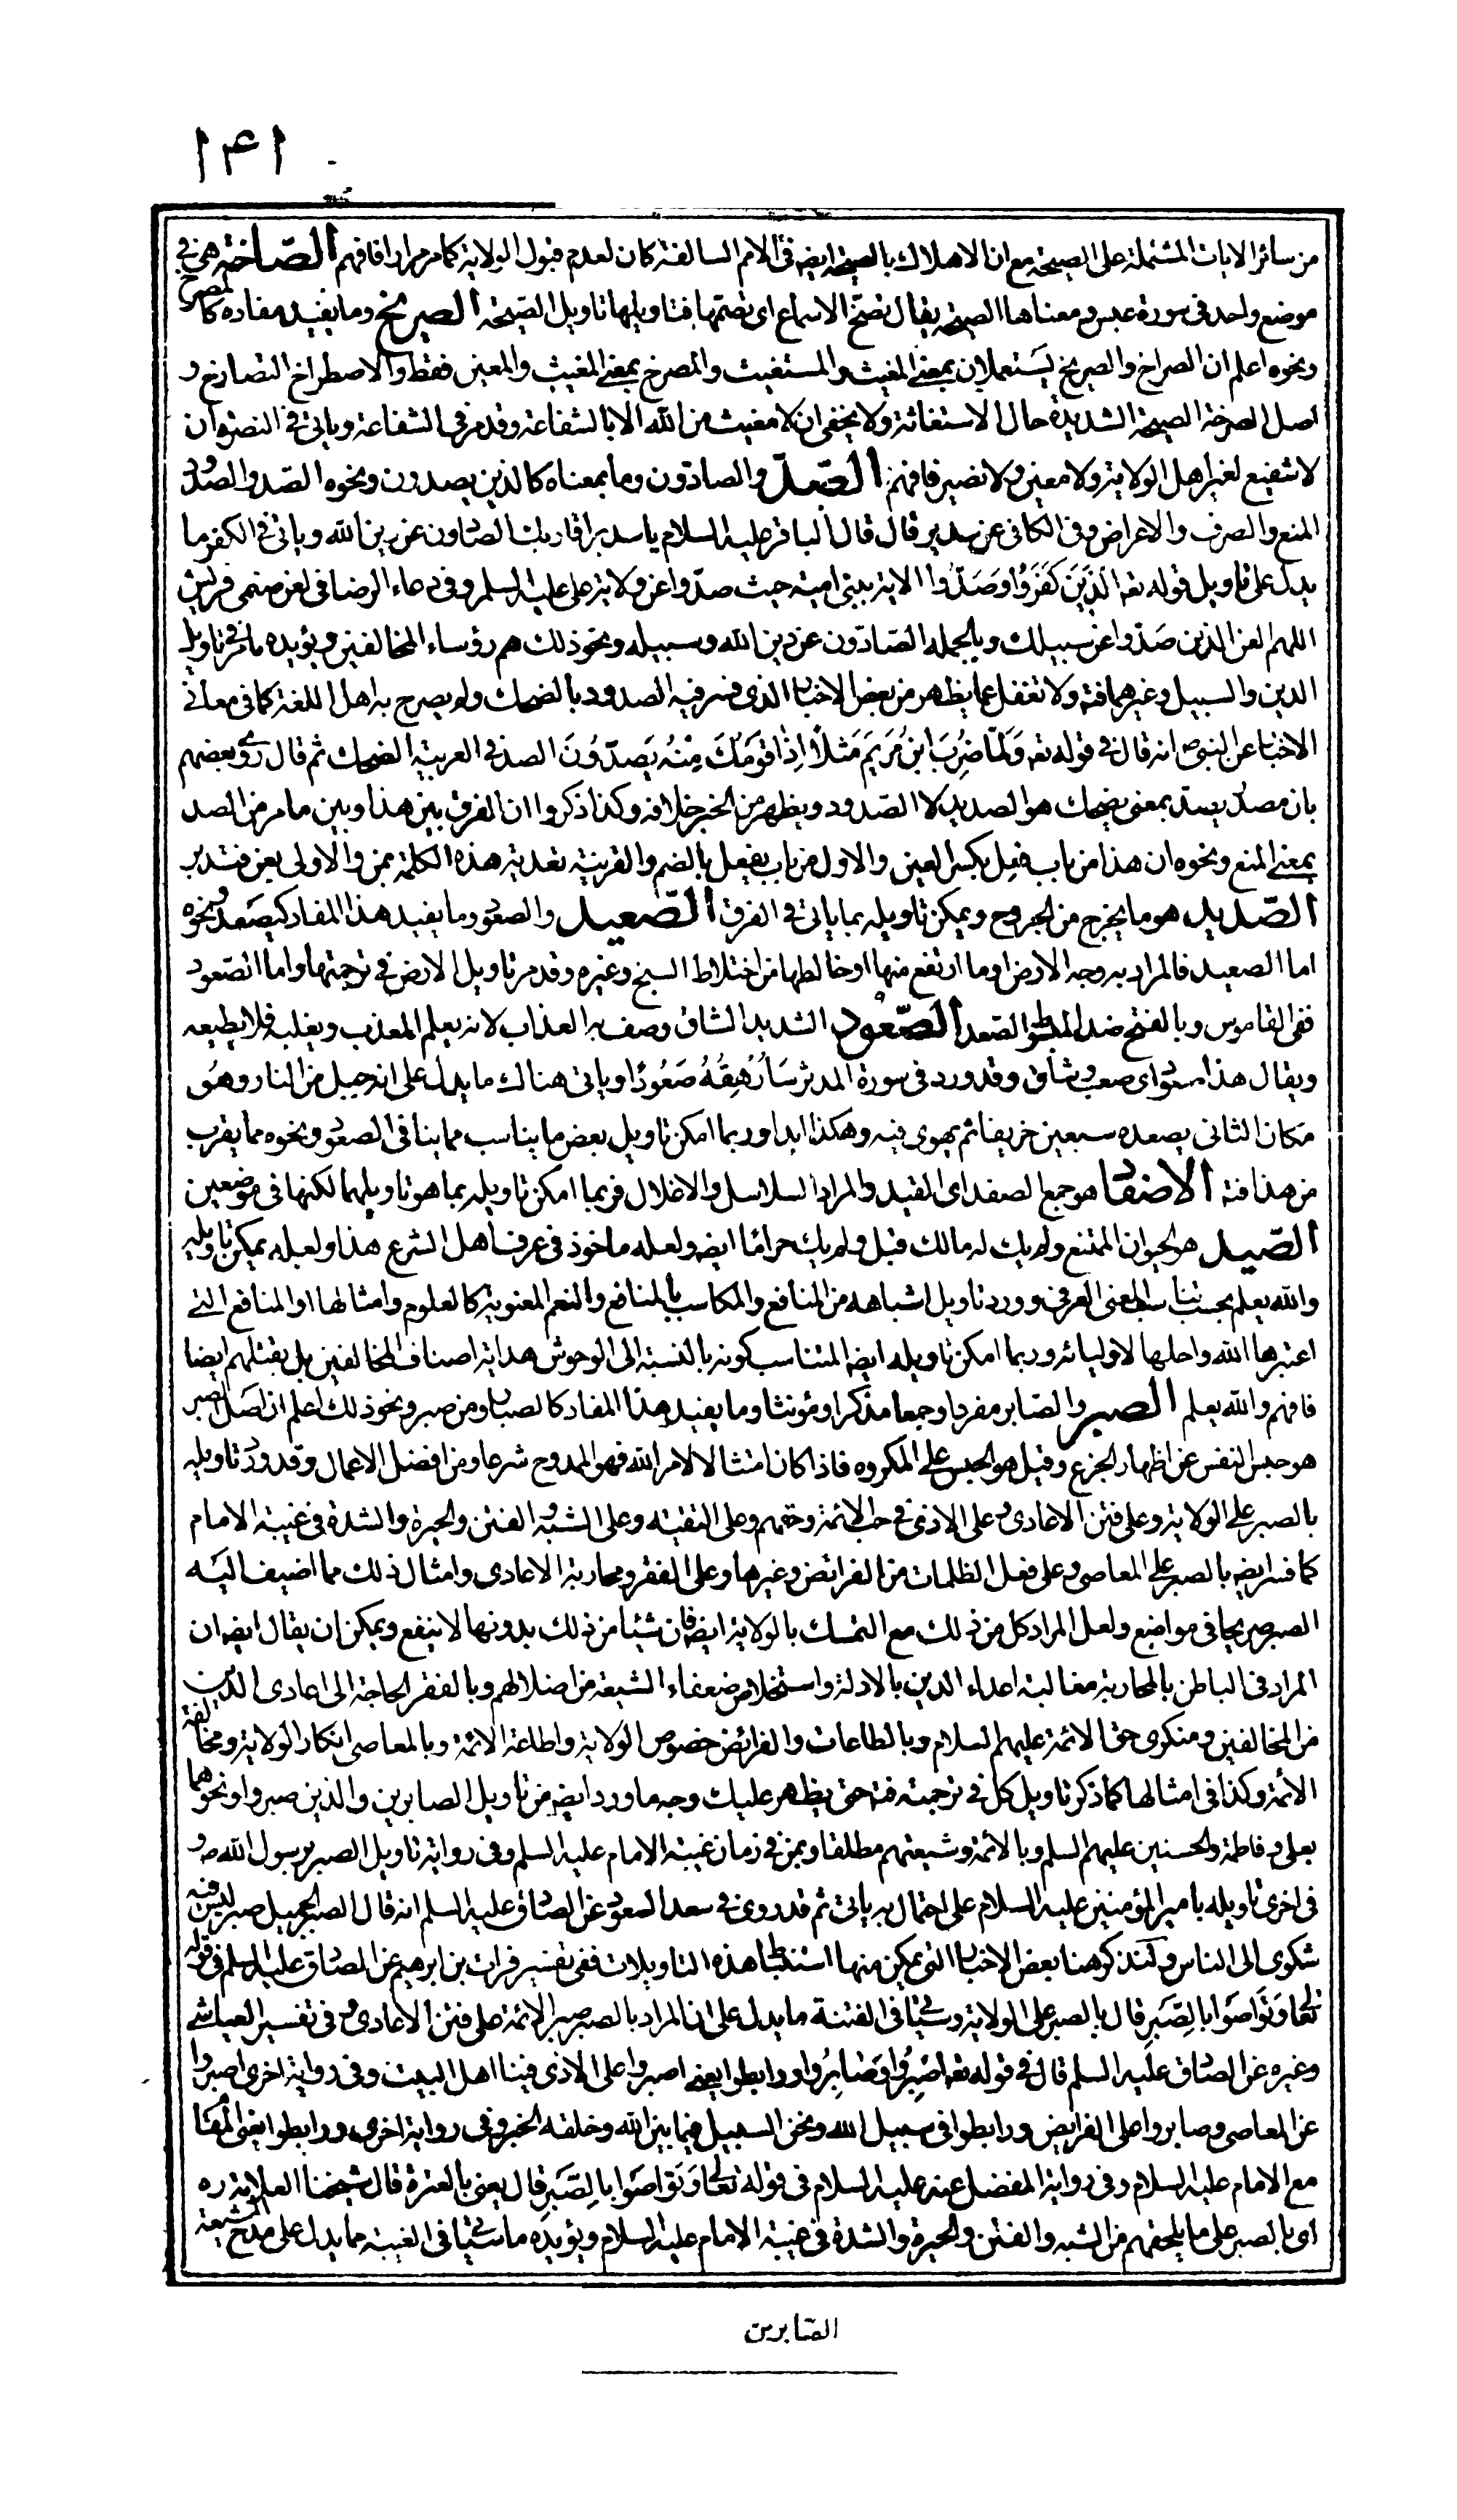 ١٤١
من سائر الايات المشتملة على الصيحة مع ان الاهلاك بالصيحة ايضا في الامم السالفة كان لعدم قبول الولاية كما مر مرارا فافهم الصّاخة هي في
موضع واحد في سورة عبس ومعناها الصيحة يقال تصخ الاسماع اى تصمها فتاويلها تاويل الصيحة الصريخ وما يفيد مفاده كالمصرخ
ونحوه اعلم ان الصراخ والصريخ يستعملان بمعنى المغيث والمستغيث والمصرخ بمعنى المغيث والمعين فقط والاصطراخ التصارخ و
اصل الصرخة الصيحة الشديدة حال الاستغاثة ولا يخفى ان لا مغيث من الله الا بالشفاعة وقد مر في الشفاعة وياتى في النصر ان
لا شفيع لغير اهل الولاية ولا معين ولا نصير فافهم الصّدّ والصادّون وما بمعناه كالذين يصدون ونحوه الصّد والصّدود
المنع والصرف والاعراض وفى الكافى عن سدير قال قال الباقر عليه السلام يا سدير افاريك الصادون عن دين الله وياتى في الكفر ما
يدل على تاويل قوله تعه الَّذِينَ كَفَرُوا وَصَدُّوا الاية ببنى امية حيث صدّوا عن ولاية على عليه السلم وفى دعاء الرضا فى لعن صنمى قريش
اللهم العن الذين صَدّوا عن سبيلك وبالجملة الصّادّون عن دين الله وسبيله ونحو ذلك هم رؤساء المخالفين ويؤيده ما مر في تاويل
الدين والسبيل وغيرهما فته ولا تغفل عما يظهر من بعض الاخبار الذى فسر فيه الصدود بالضحك ولم يصرح به اهل اللغة كما فى معانى
الاخبار عن النبى ص انه قال في قوله تعه وَلَمَّا ضُرِبَ ابنُ مَريَمَ مَثَلاً اِذَا قَومُكَ مِنْهُ يَصِدُّونَ الصد في العربية الضحك ثم قال بعضهم
بان مصدر يصدّ بمعنى يضحك هو الصديد لا الصّدود ويظهر من الخبر خلافه وكذا ذكروا ان الفرق بين هذا وبين ما مر من الصد
بمعنى المنع ونحوه ان هذا من باب فعل بكسر العين والاول من باب يفعل بالضم والقرينة تعدية هذه الكلمة بمن والاولى بعن فتدبر
الصّديد هو ما يخرج من الجروح ويمكن تاويله بما ياتى في الغرق الصّعيد والصعود وما يفيد هذا المفاد كيصَعد ونحوه
اما الصعيد فالمراد به وجه الارض او ما ارتفع منها او خالطها من اختلاط السبخ وغيره وقد مر تاويل الارض في ترجمتها واما الصّعود
ففى القاموس وبالفتح ضد الهبوط والصّعد الصّعُود الشديد الشاق وصف به العذاب لانه يعلم المعذب ويغلبه فلا يطيعه
ويقال هذا صعود اى صعب وشاق وقد ورد فى سورة المدثر سَأُرْهِقُهُ صَعُودًا وياتى هناك ما يدل على انه جبل من النار وهو
مكان الثانى يصعده سبعين خريفا ثم يهوى فيه وهكذا ابدا وربما امكن تاويل بعض ما يناسب مما ينافى الصعود ونحوه مما يقرب
من هذا فته الاصفاد هو جمع الصفد اى القيد والمراد السلاسل والاغلال فربما امكن تاويله بما هو تاويلهما لكنها فى موضعين
الصّيد هو الحيوان الممتنع ولم يك له مالك قبل ولم يك حرامًا ايضه ولعله ماخوذ فى عرف اهل الشرع هذا ولعله يمكن تاويله
والله يعلم بحسب تناسب المعنى العرفى وورود تاويل اشباهه من المنافع والمكاسب بالمنافع والنعم المعنوية كالعلوم وامثالها او المنافع التى
اعتبرها الله واحلها لاوليائه وربما امكن تاويله ايضه لتناسب كونه بالنسبة الى الوحوش هداية اصناف المخالفين بل بقتلهم ايضا
فافهم والله يعلم الصبر والصّابر مفردا وجمعا مذكرا ومؤنثا وما يفيد هذا المفاد كالصبار ومن صبر ونحو ذلك اعلم ان اصل الصبر
هو حبس النفس عن اظهار الجزع وقيل هو الحبس على المكروه فاذا كان امتثالا لامر الله فهو الممدوح شرعا ومن افضل الاعمال وقد ورد تاويله
بالصبر على الولاية وعلى فتن الاعادى وعلى الاذى في حب الائمة وحقهم وعلى التقيته وعلى الشبه والفتن والحيرة والشدة فى غيبة الامام
كما فسر ايضه بالصبر على المعاصى وعلى فعل الطاعات من الفرائض وغيرها وعلى الفقر ومحاربة الاعادى وامثال ذلك مما اضيف اليه
الصبر صريحا فى مواضع ولعل المراد كل من ذلك مع التمسك بالولاية ايضه فان شيئا من ذلك بدونها لا ينفع ويمكن ان يقال ايضه ان
المراد فى الباطن بالمحاربة مغالبة اعداء الدين بالادلة واستخلاص ضعفاء الشيعة من اضلالهم وبالفقر الحاجة الى اعادى الدين
من المخالفين ومنكرى حق الائمة عليهم السلام وبالطاعات والفرائض خصوص الولاية واطاعة الائمة وبالمعاصى انكار الولاية ومخالفة
الأئمة وكذا فى امثالها كما ذكر تاويل كل فى ترجمته فته حتى يظهر عليك وجه ما ورد ايضه من تاويل الصابرين والذين صبروا ونحوهما
بعلى وفاطمة والحسنين عليهم السلم وبالائمة وشيعتهم مطلقا وبمن في زمان غيبة الامام عليه السلم وفى رواية تاويل الصبر برسول الله ص و
فى اخرى تاويله بامير المؤمنين عليه السلام على احتمال به ياتى ثم قد روى في سعد السعود عن الصادق عليه السلم انه قال الصبر الجميل صبر ليس فيه
شكوى الى الناس ولنذكر هنا بعض الاخبار التى يمكن منها استنباط هذه التاويلات ففى تفسير فرات بن ابرهيم عن الصادق عليه السلم فى قوله
تعالى وَتَوَاصَوْا بِالصَّبرِ قال بالصبر على الولاية وسياتى فى الفتنة ما يدل على ان المراد بالصبر صبر الائمة على فتن الاعادى و فى تفسير العياشى
وغيره عن الصادق عليه السلم قال في قوله تعه اصْبِرُوا وَصَابِرُوا وَرابطوا يعنى اصبروا على الاذى فينا اهل البيت وفى رواية اخرى اصبروا
عن المعاصى وصابروا على الفرايض ورابطوا فى سبيل الله ونحن السبيل فيما بين الله وخلقه الخبر وفى رواية اخرى ورابطوا يعنى المقام
مع الامام عليه السلام وفى رواية المفضل عنه عليه السلام فى قوله تعالى وَتَواصَوا بالصَّبرِ قال يعنى بالعترة قال شيخنا العلامة ره
اى بالصبر على ما يلحقهم من الشبه والفتن والحيرة والشدة فى غيبة الامام عليه السلام ويؤيده ما سياتى فى الغيبة مما يدل على مدح الشيعة
الصّابرين